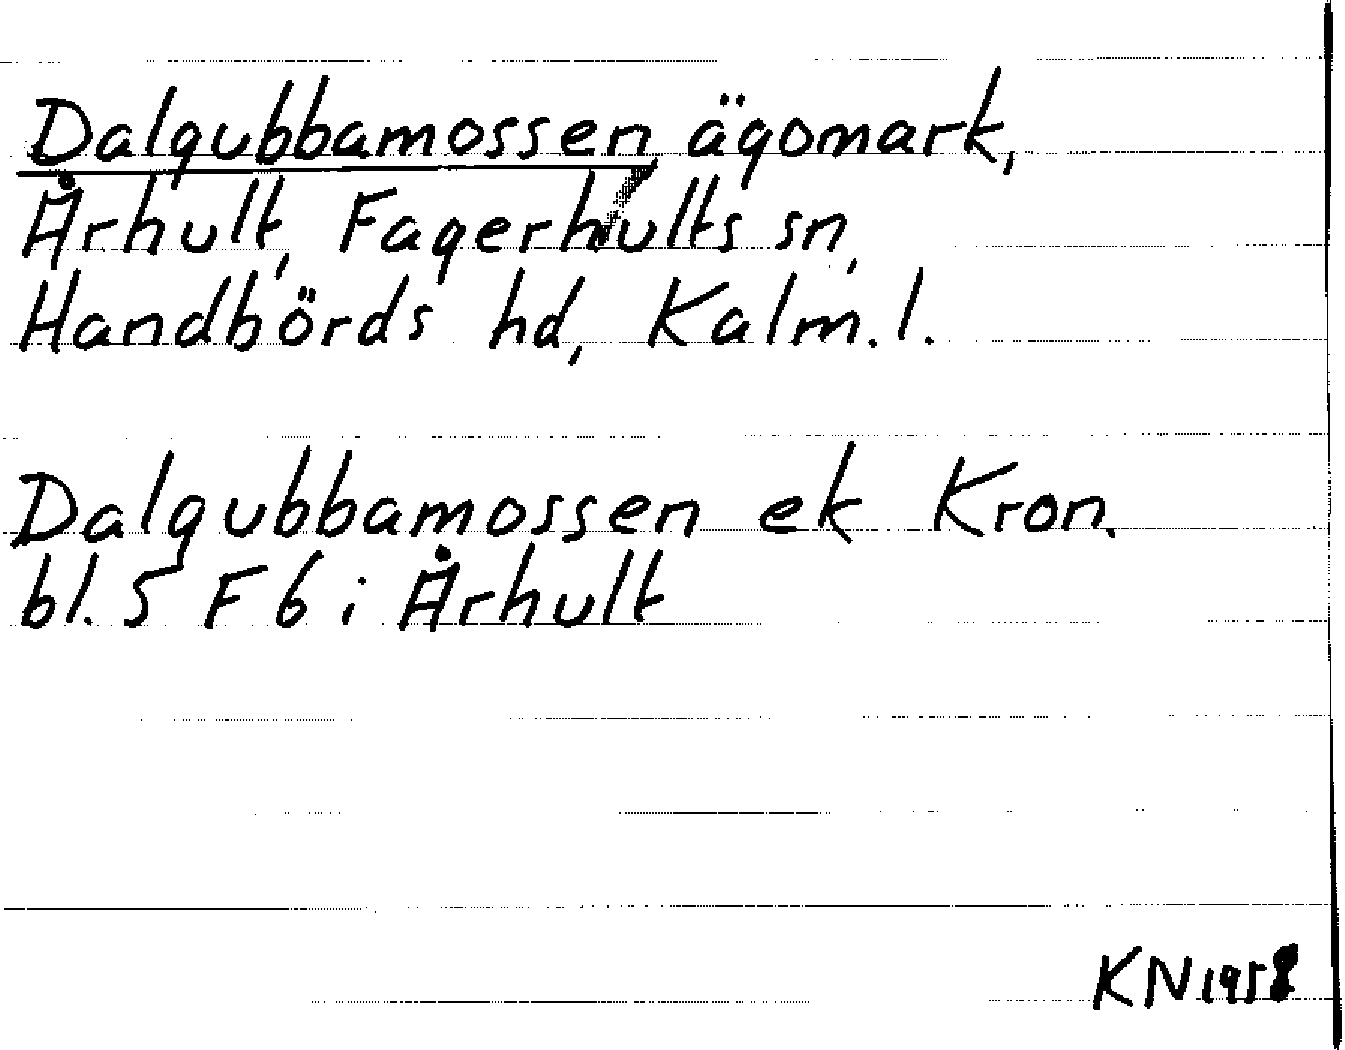 Dalgubbamossen ägomark,
Århult, Fagerhults sn,
Handbörds hd, Kalm. l.
Dalgubbamossen ek Kron.
bl. 5 F 6 i Århult
KN 1958